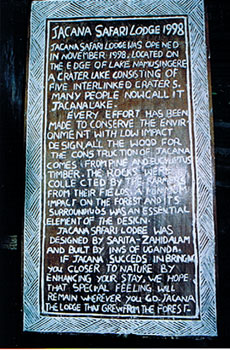 JACANA SAFARI LODGE 1998
JACANA SAFARI LODGE WAS OPENED
IN NOVEMBER 1998. LOCATED ON
THE EDGE OF LAKE NAMUSINGERE
A CRATER LAKE CONSISTING OF
FIVE INTERLINKED CRATERS.
MANY PEOPLE NOW CALL IT
JACANA LAKE.
EVERY EFFORT HAS BEEN
MADE TO CONSERVE THE ENVIR-
ONMENT WITH LOW IMPACT
DESIGN, ALL THE WOOD FOR
THE CONSTRUCTION OF JACANA
COMES FROM PINE AND EUCALYPTUS
TIMBER. THE ROCKS WERE
COLLECTED BY THE FARMERS
FROM THEIR FIELDS. A MINIMUM
IMPACT ON THE FOREST AND ITS
SURROUNDINGS WAS AN ESSENTIAL
ELEMENT OF THE DESIGN.
JACANA SAFARI LODGE WAS
DESIGNED BY SARITA - ZAHID ALAM
AND BUILT BY INNS OF UGANDA.
IF JACANA SUCCEEDS IN BRINGING
YOU CLOSER TO NATURE BY
ENHANCING YOUR STAY, WE HOPE
THAT SPECIAL FEELING WILL
REMAIN WHEREVER YOU GO. JACANA
THE LODGE THAT GREW FROM THE FOREST.